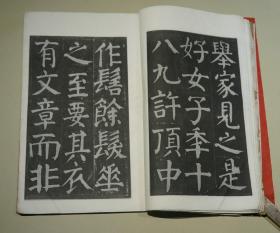 舉家見之是
好女子秊十
八九許頂中
作髻餘髮坐
之至要其衣
有文章而非